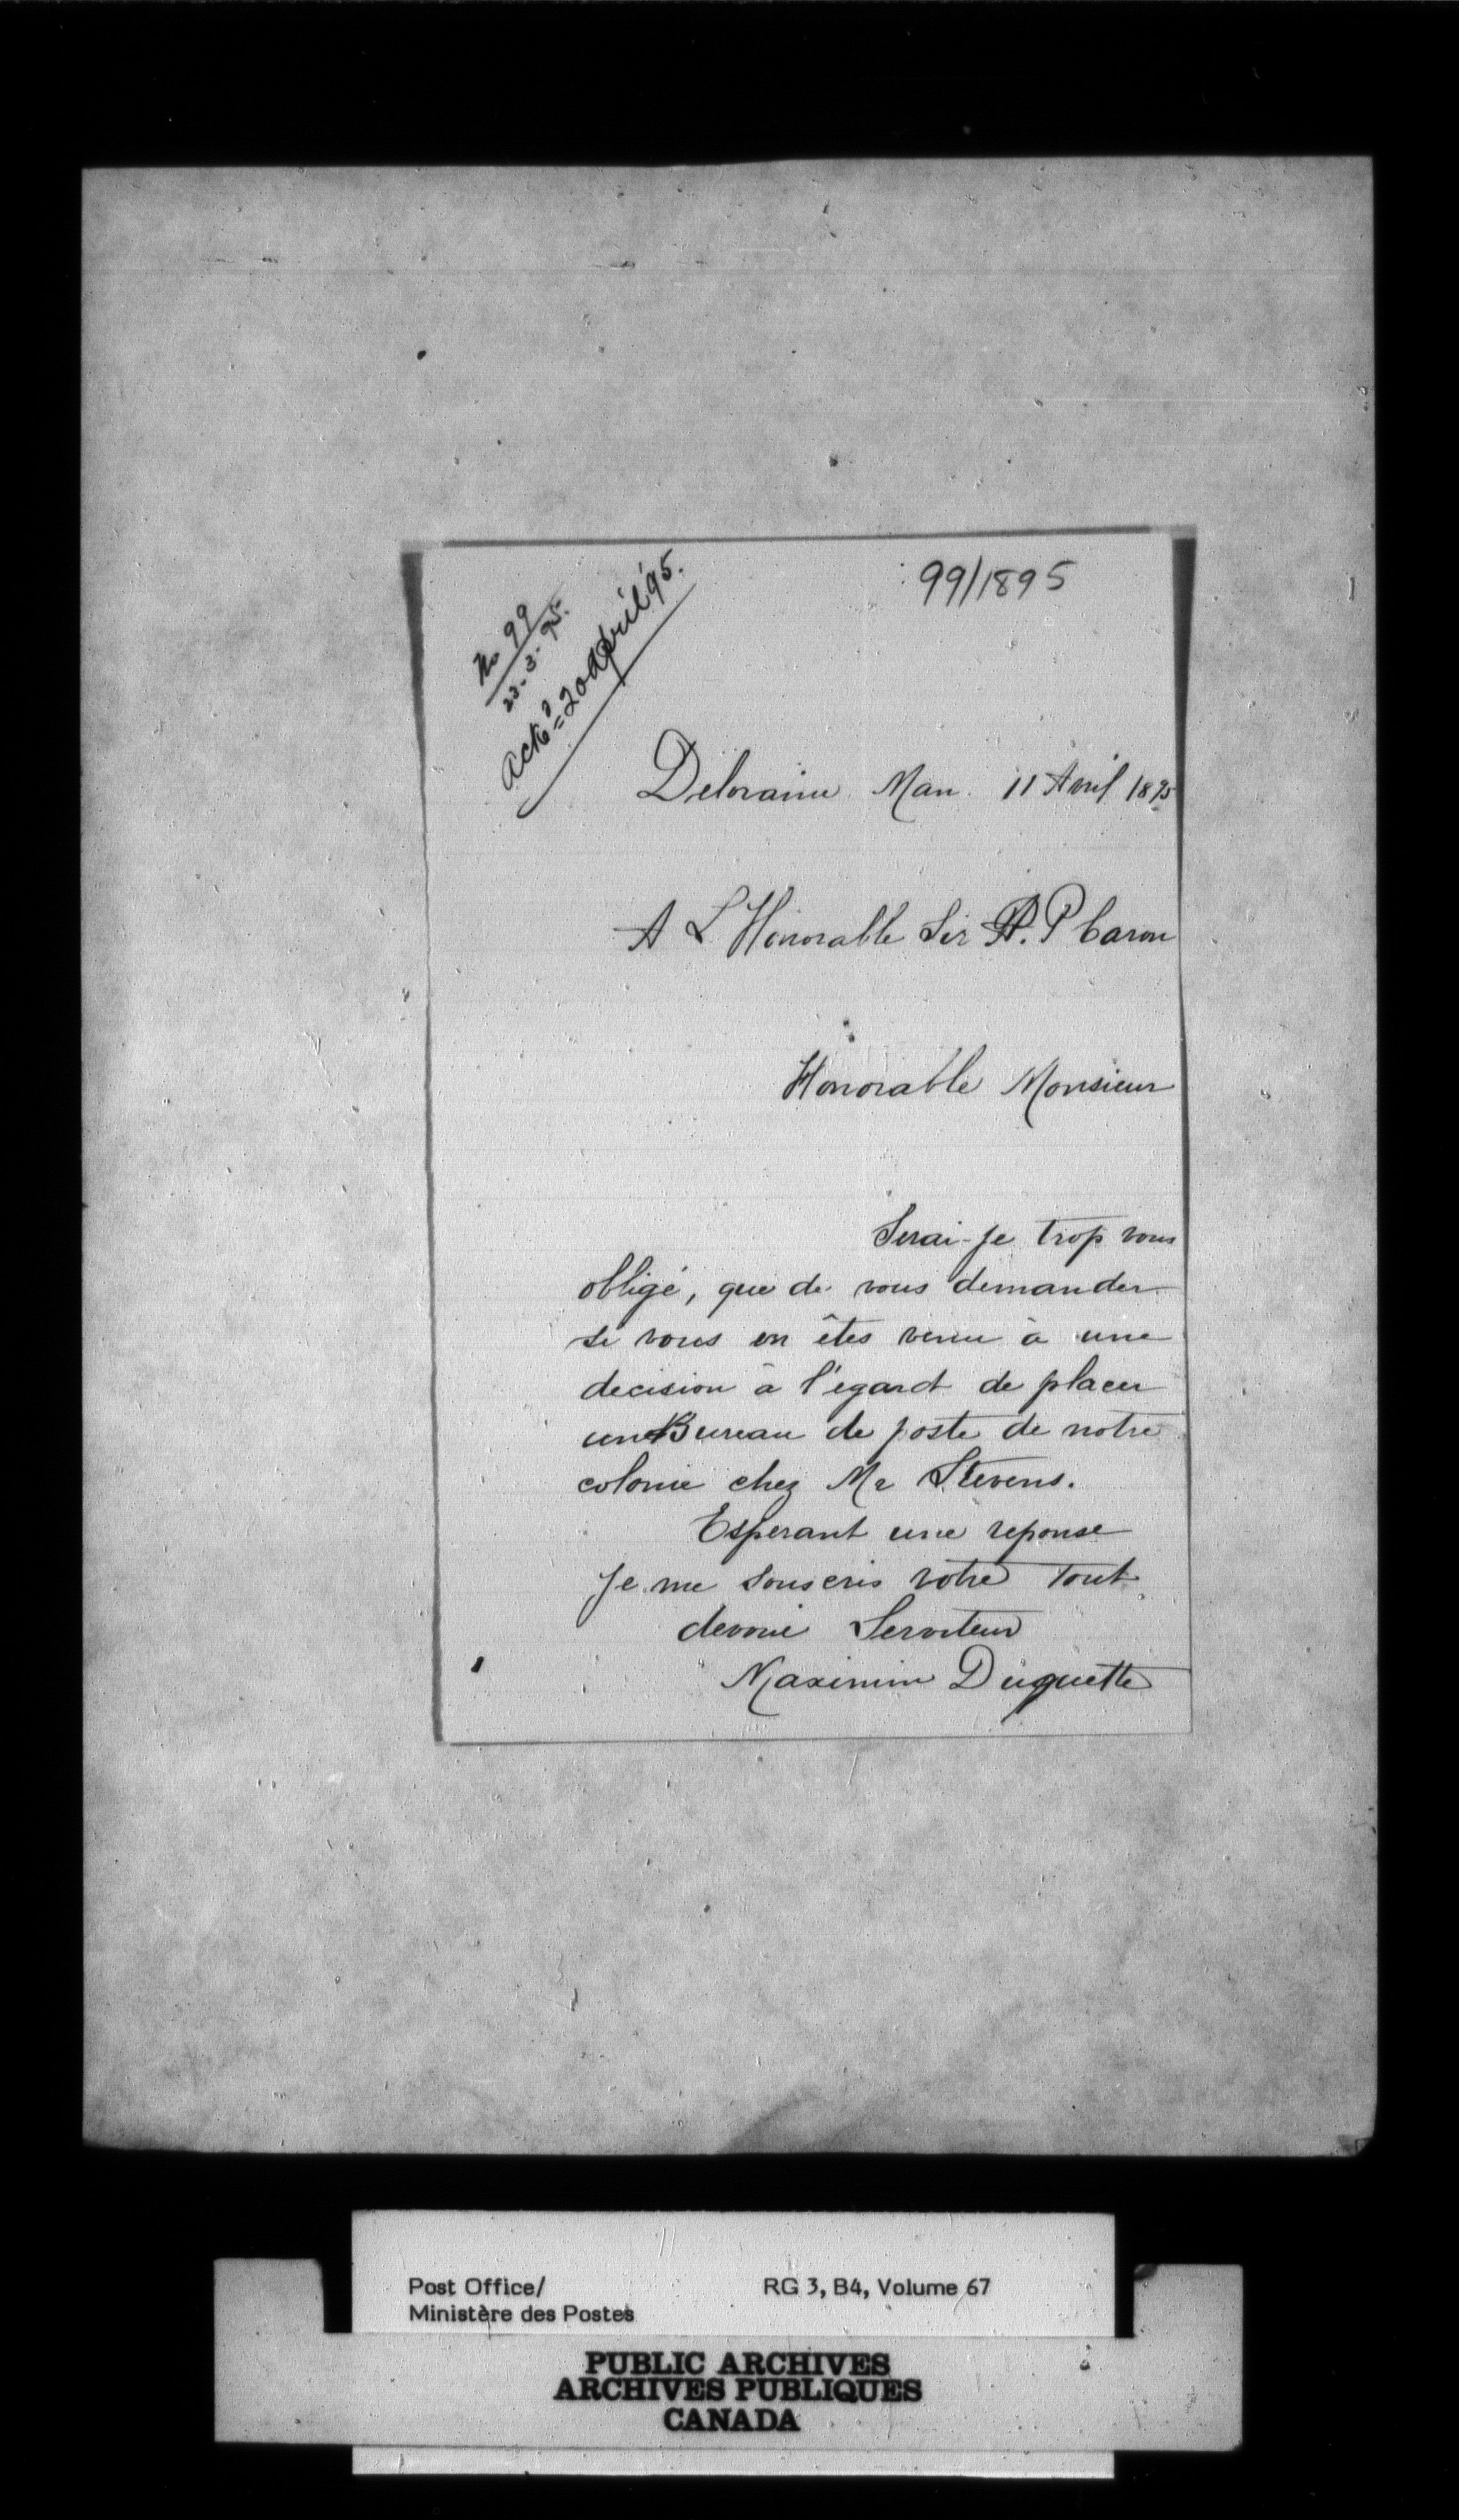 99/1895
No 99
23-3-95.
Ackd = 20 April '95.
Deloraine Man. 11 Avril 1895
A L'Honorable Sir A. P Caron
Honorable Monsieur
Serai-Je trop vous
obligé, que de vous demander
si vous en êtes venu à une
decision à l'egard de placer
un Bureau de poste de notre
colonie chez Mr Stevens.
Esperant une reponse
Je me souscris votre Tout
devoué Serviteur
Maximin Duquette
Post Office/
Ministère des Postes
RG 3, B4, Volume 67
PUBLIC ARCHIVES
ARCHIVES PUBLIQUES
CANADA